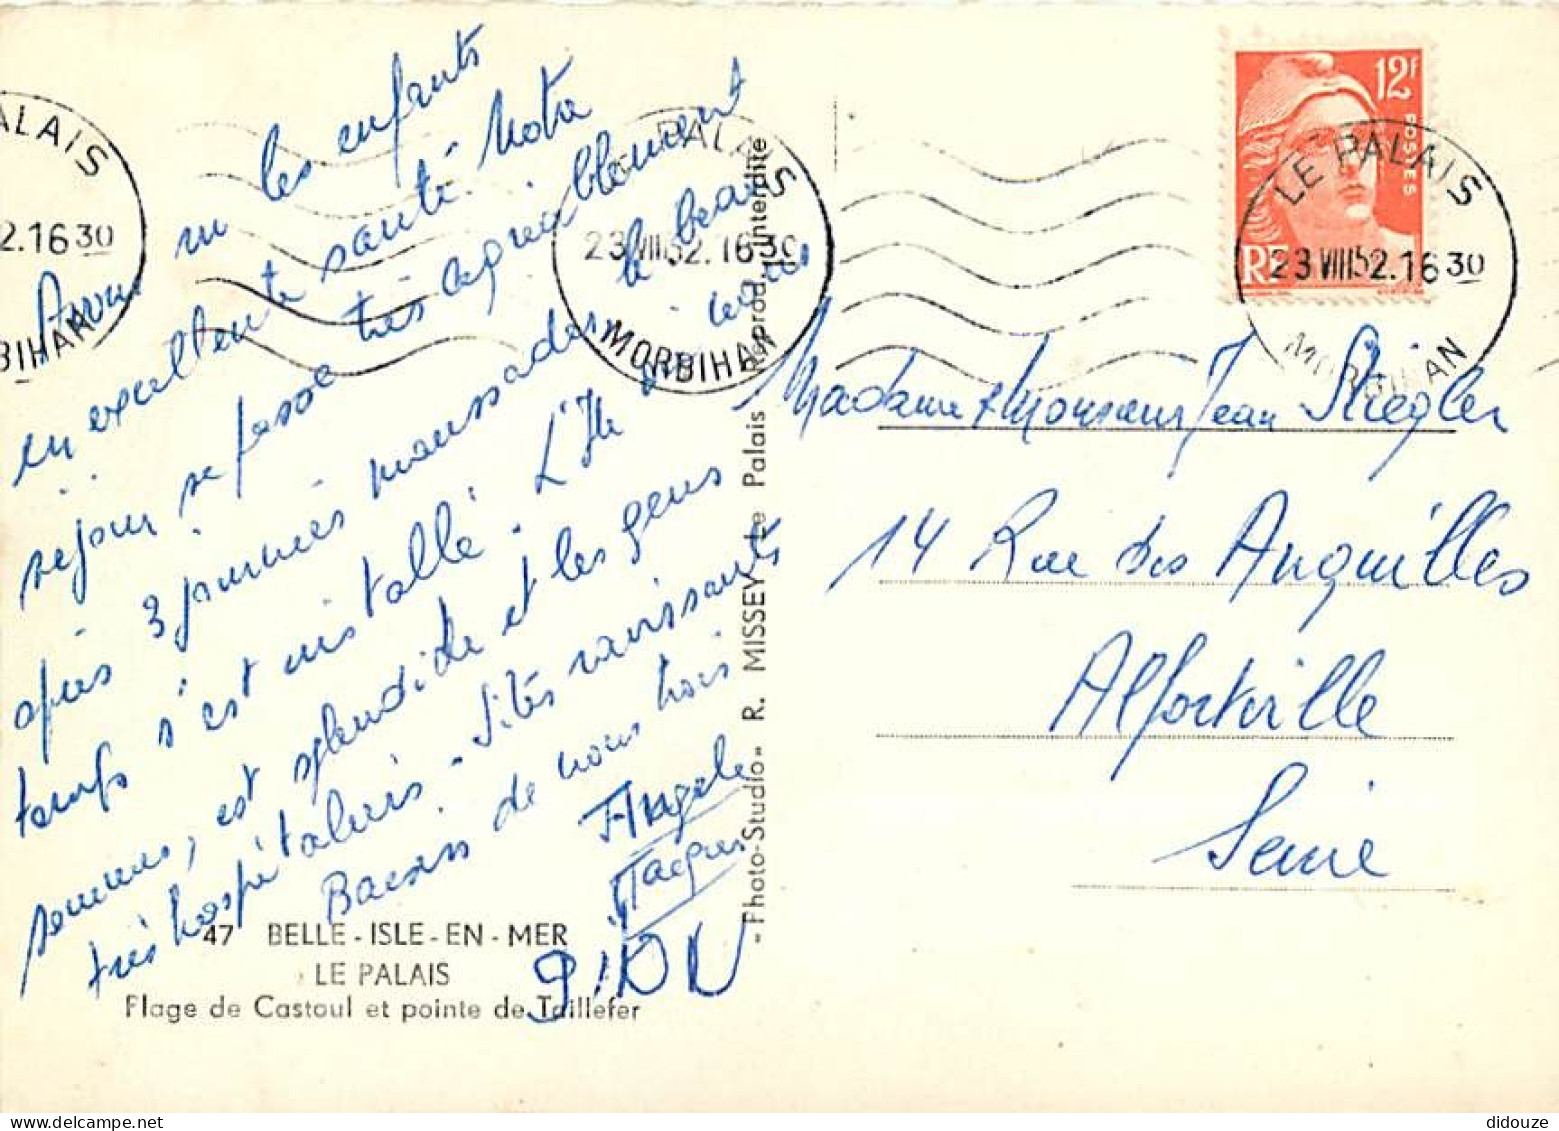 Avons vu les enfants
en excellente santé. Notre
séjour se passe très agréablement
après 3 journées maussades le beau
temps s'est installé. L'Ile où nous
sommes, est splendide et les gens
très hospitaliers. Sites ravissants
Baisers de nous trois
Angele
Jacques
47 BELLE-ISLE-EN-MER
LE PALAIS
Plage de Castoul et pointe de Taillefer
"Photo-Studio" R. MISSEY Le Palais Reprod. Interdite
PALAIS
2.16 30
BIHAN
LE PALAIS
23 VIII 52.16 30
MORBIHAN
12F
POSTES
RF
LE PALAIS
23 VIII 52.16 30
MORBIHAN
Madame & Monsieur Jean Stiegler
14 Rue des Anguilles
Alfortville
Seine
didouze